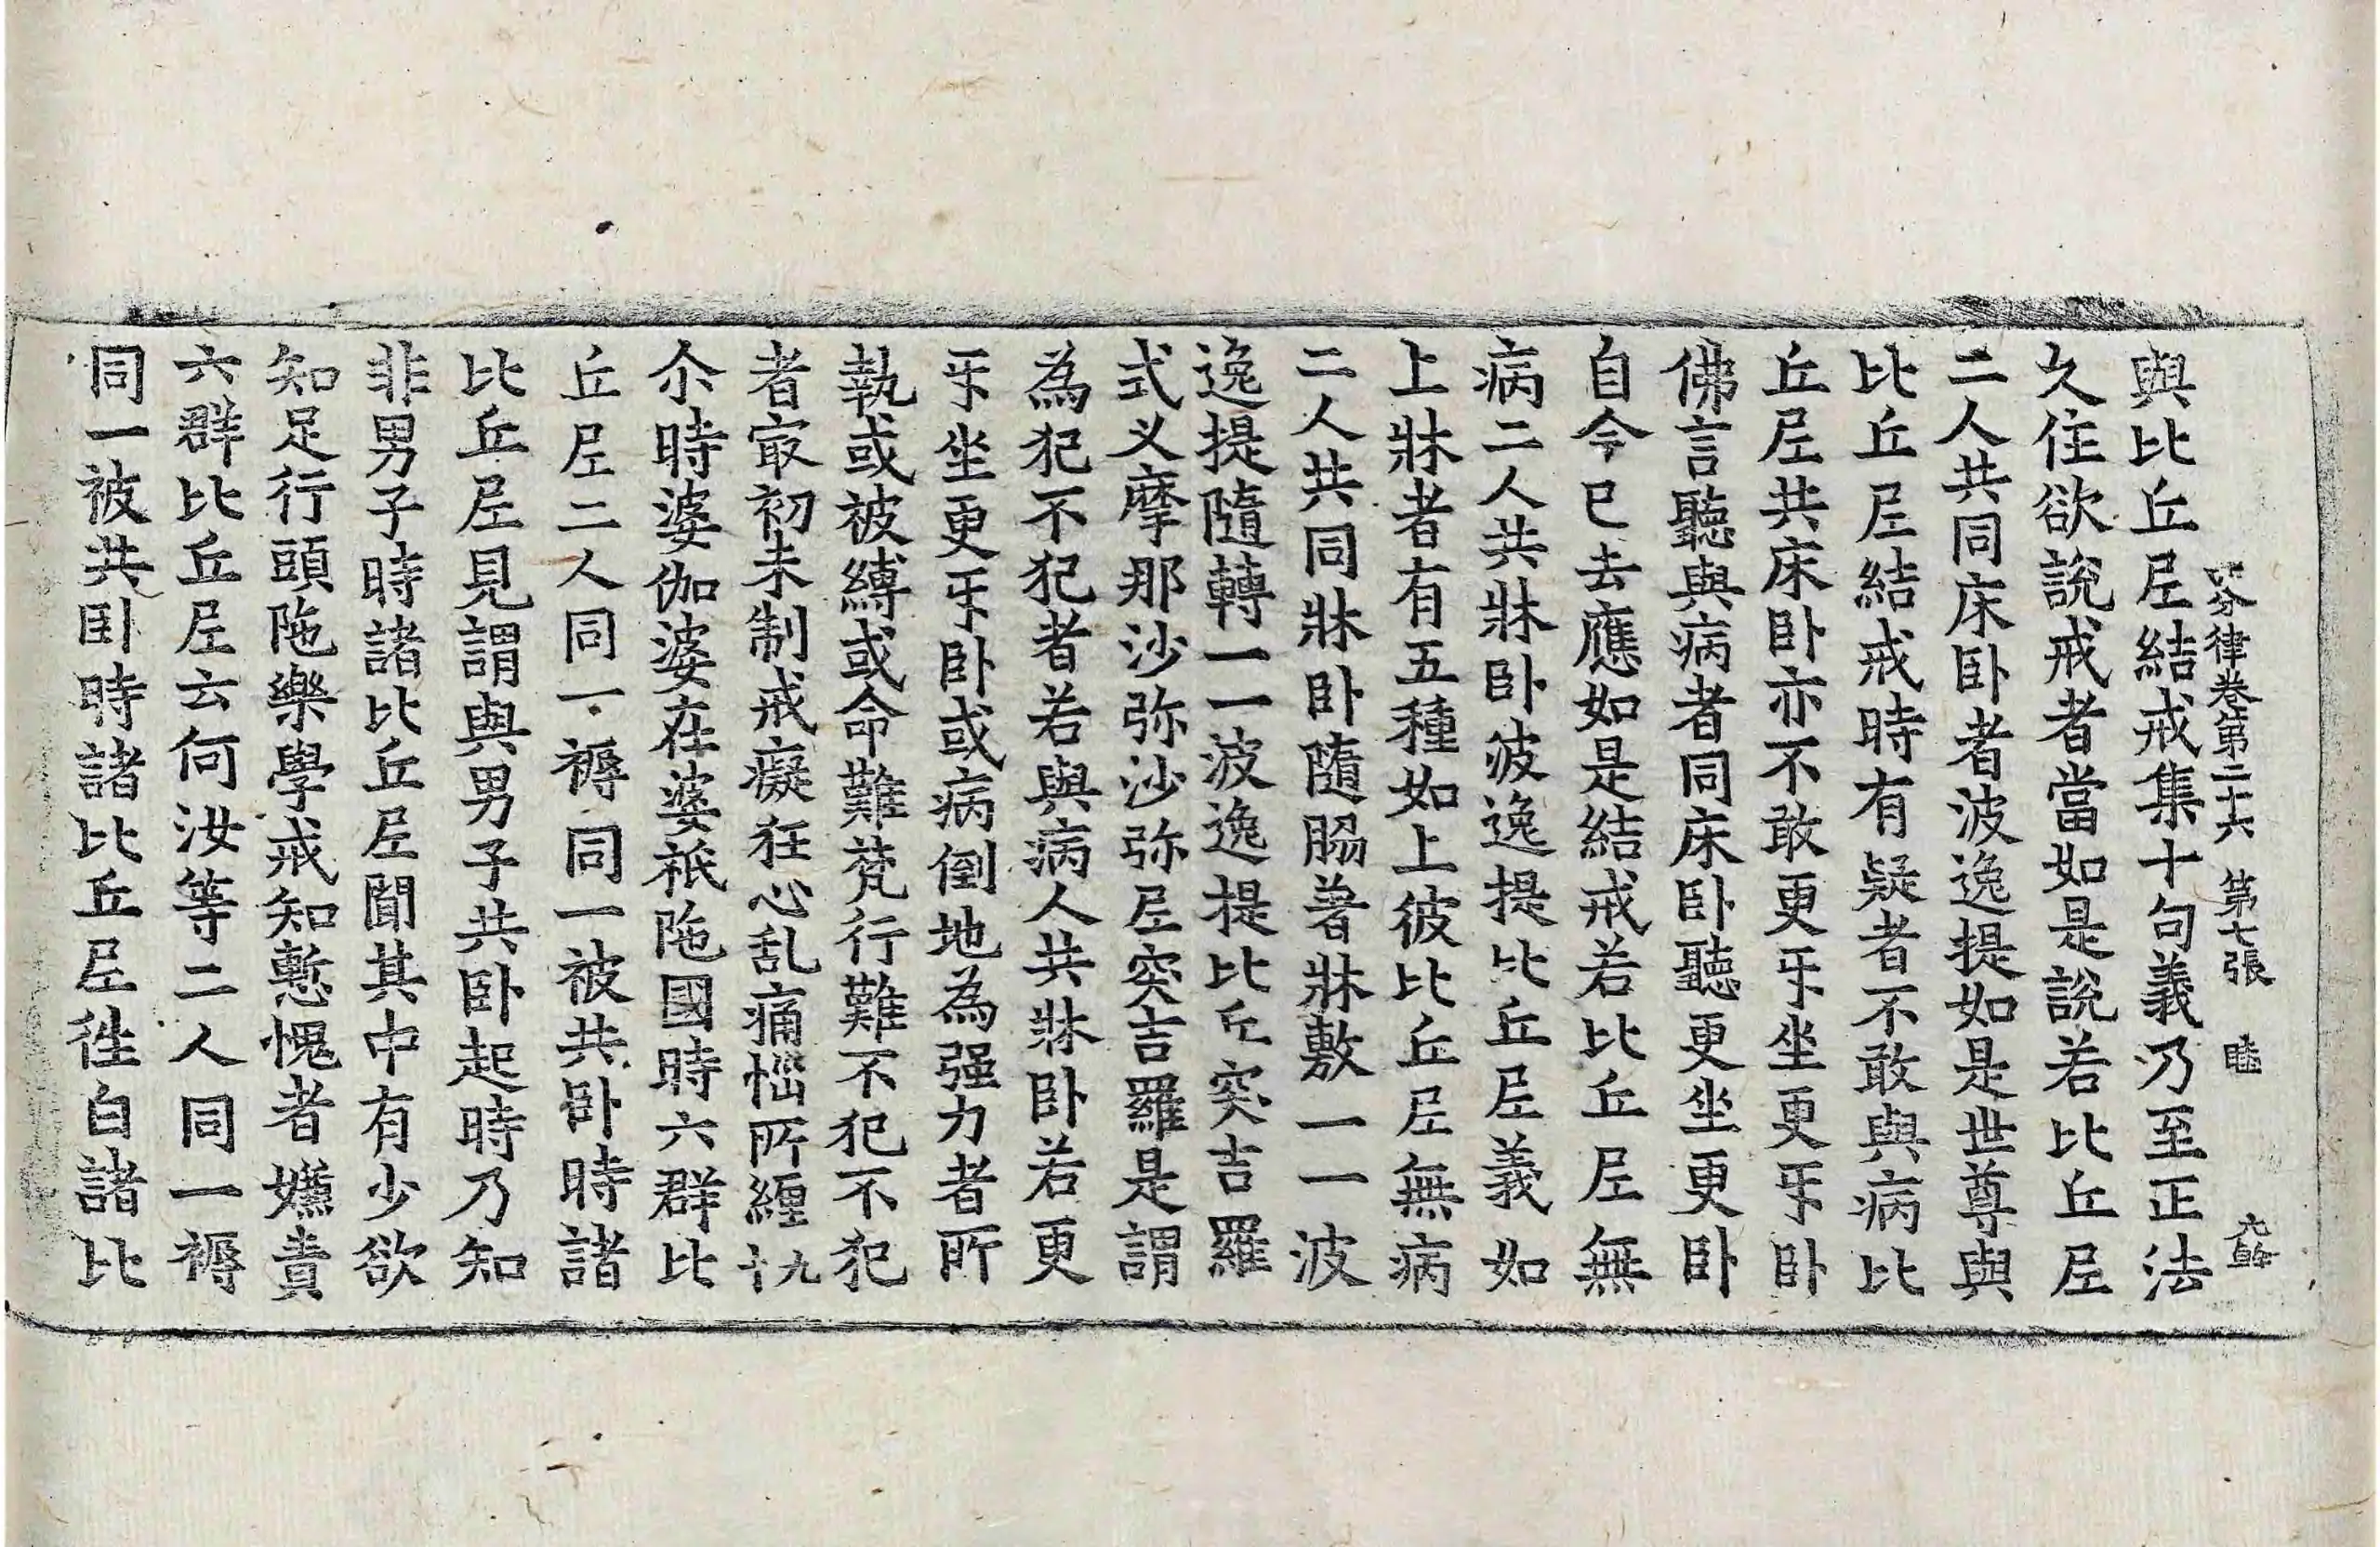 四分律卷第二十六 第七張 睦
與比丘尼結戒集十句義乃至正法
久住欲說戒者當如是說若比丘尼
二人共同床卧者波逸提如是世尊與
比丘尼結戒時有疑者不敢與病比
丘尼共床卧亦不敢更㸦坐更㸦卧
佛言聽與病者同床卧聽更坐更卧
自今已去應如是結戒若比丘尼無
病二人共牀卧波逸提比丘尼義如
上牀者有五種如上彼比丘尼無病
二人共同牀卧隨脇著牀敷一一波
逸提隨轉一一波逸提比丘突吉羅
式叉摩那沙弥沙弥尼突吉羅是謂
為犯不犯者若與病人共牀卧若更
㸦坐更㸦卧或病倒地為强力者所
執或被縛或命難梵行難不犯不犯
者㝡初未制戒癡狂心乱痛惱所纏九十
尒時婆伽婆在婆祇陁國時六群比
丘尼二人同一褥同一被共卧時諸
比丘尼見謂與男子共卧起時乃知
非男子時諸比丘尼聞其中有少欲
知足行頭陁樂學戒知慙愧者嫌責
六群比丘尼云何汝等二人同一褥
同一被共卧時諸比丘尼徃白諸比